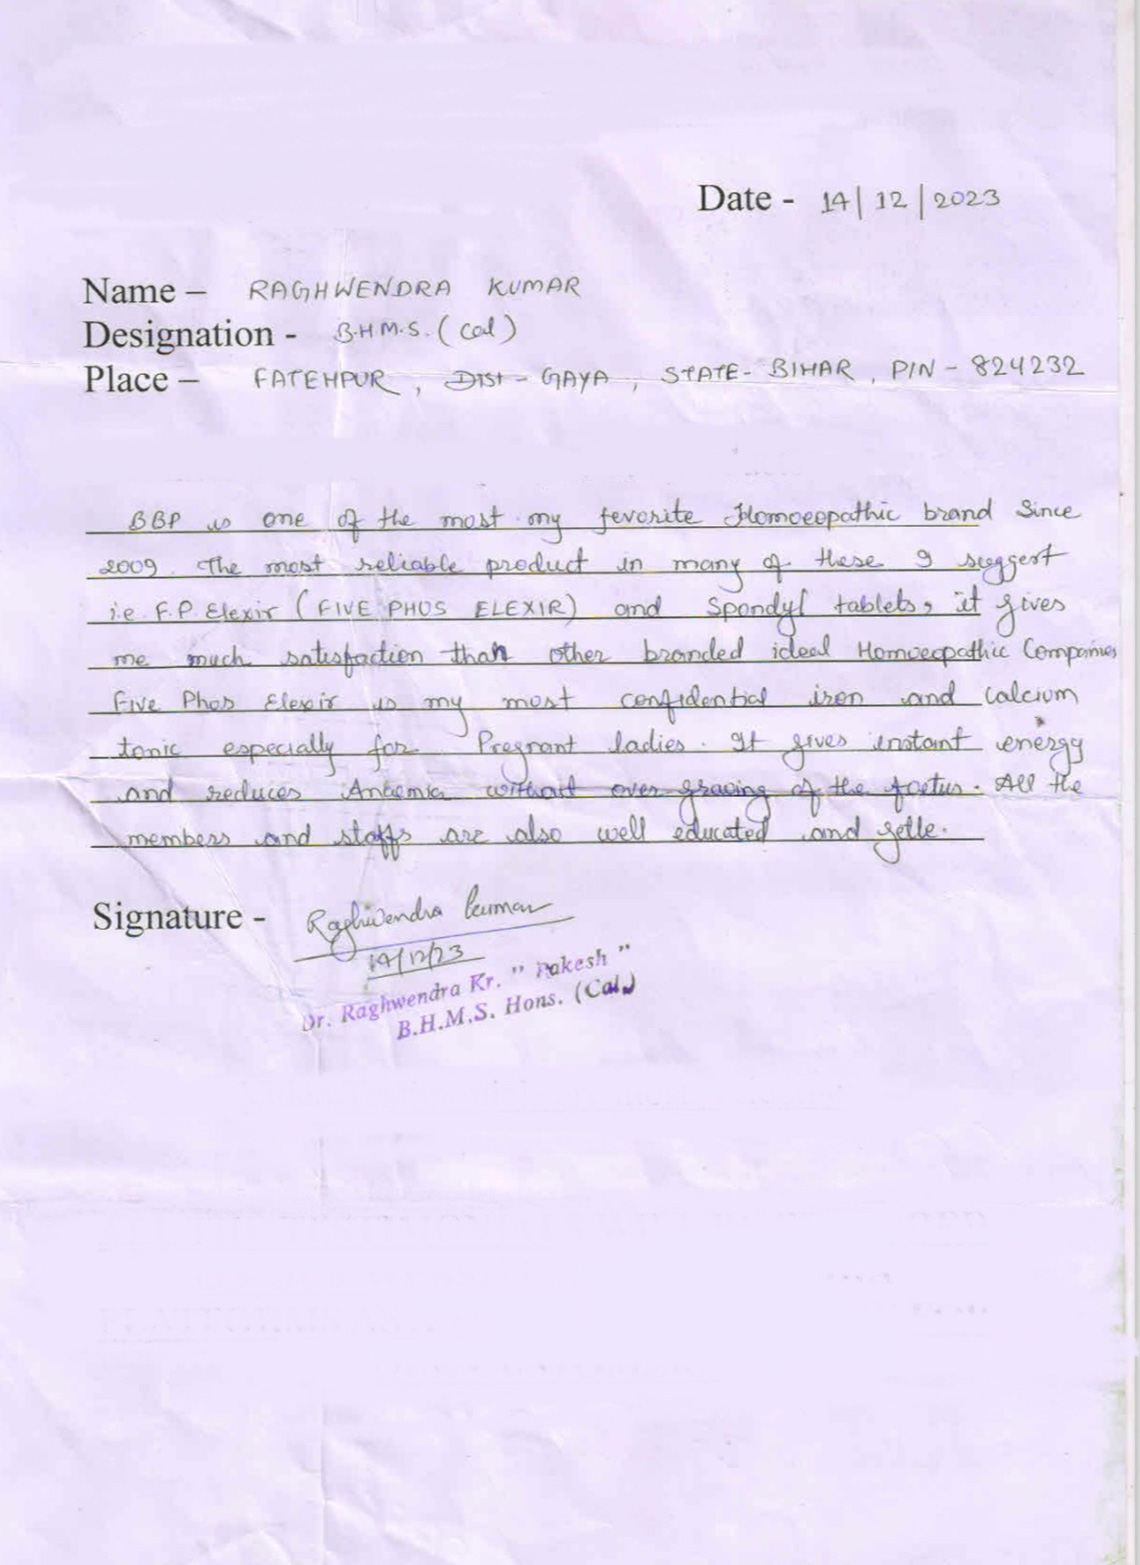 Date - 14/12/2023
Name – RAGHWENDRA KUMAR
Designation - B.H.M.S. (Cal)
Place – FATEHPUR, DIST - GAYA, STATE - BIHAR, PIN - 824232
BBP is one of the most my feverite Homoeopathic brand Since
2009. The most reliable product in many of these I suggest
i.e. F.P. Elexir (FIVE PHOS ELEXIR) and Spondyl tablets, it gives
me much satisfaction than other branded ideal Homoeopathic Companies
Five Phos Elexir is my most confidential iron and calcium
tonic especially for Pregnant ladies. It gives instant energy
and reduces Anaemia without over growing of the foetus. All the
members and staffs are also well educated and
Signature - Raghwendra Kumar
14/12/23
Dr. Raghwendra Kr. " Rakesh "
B.H.M.S. Hons. (Cal.)